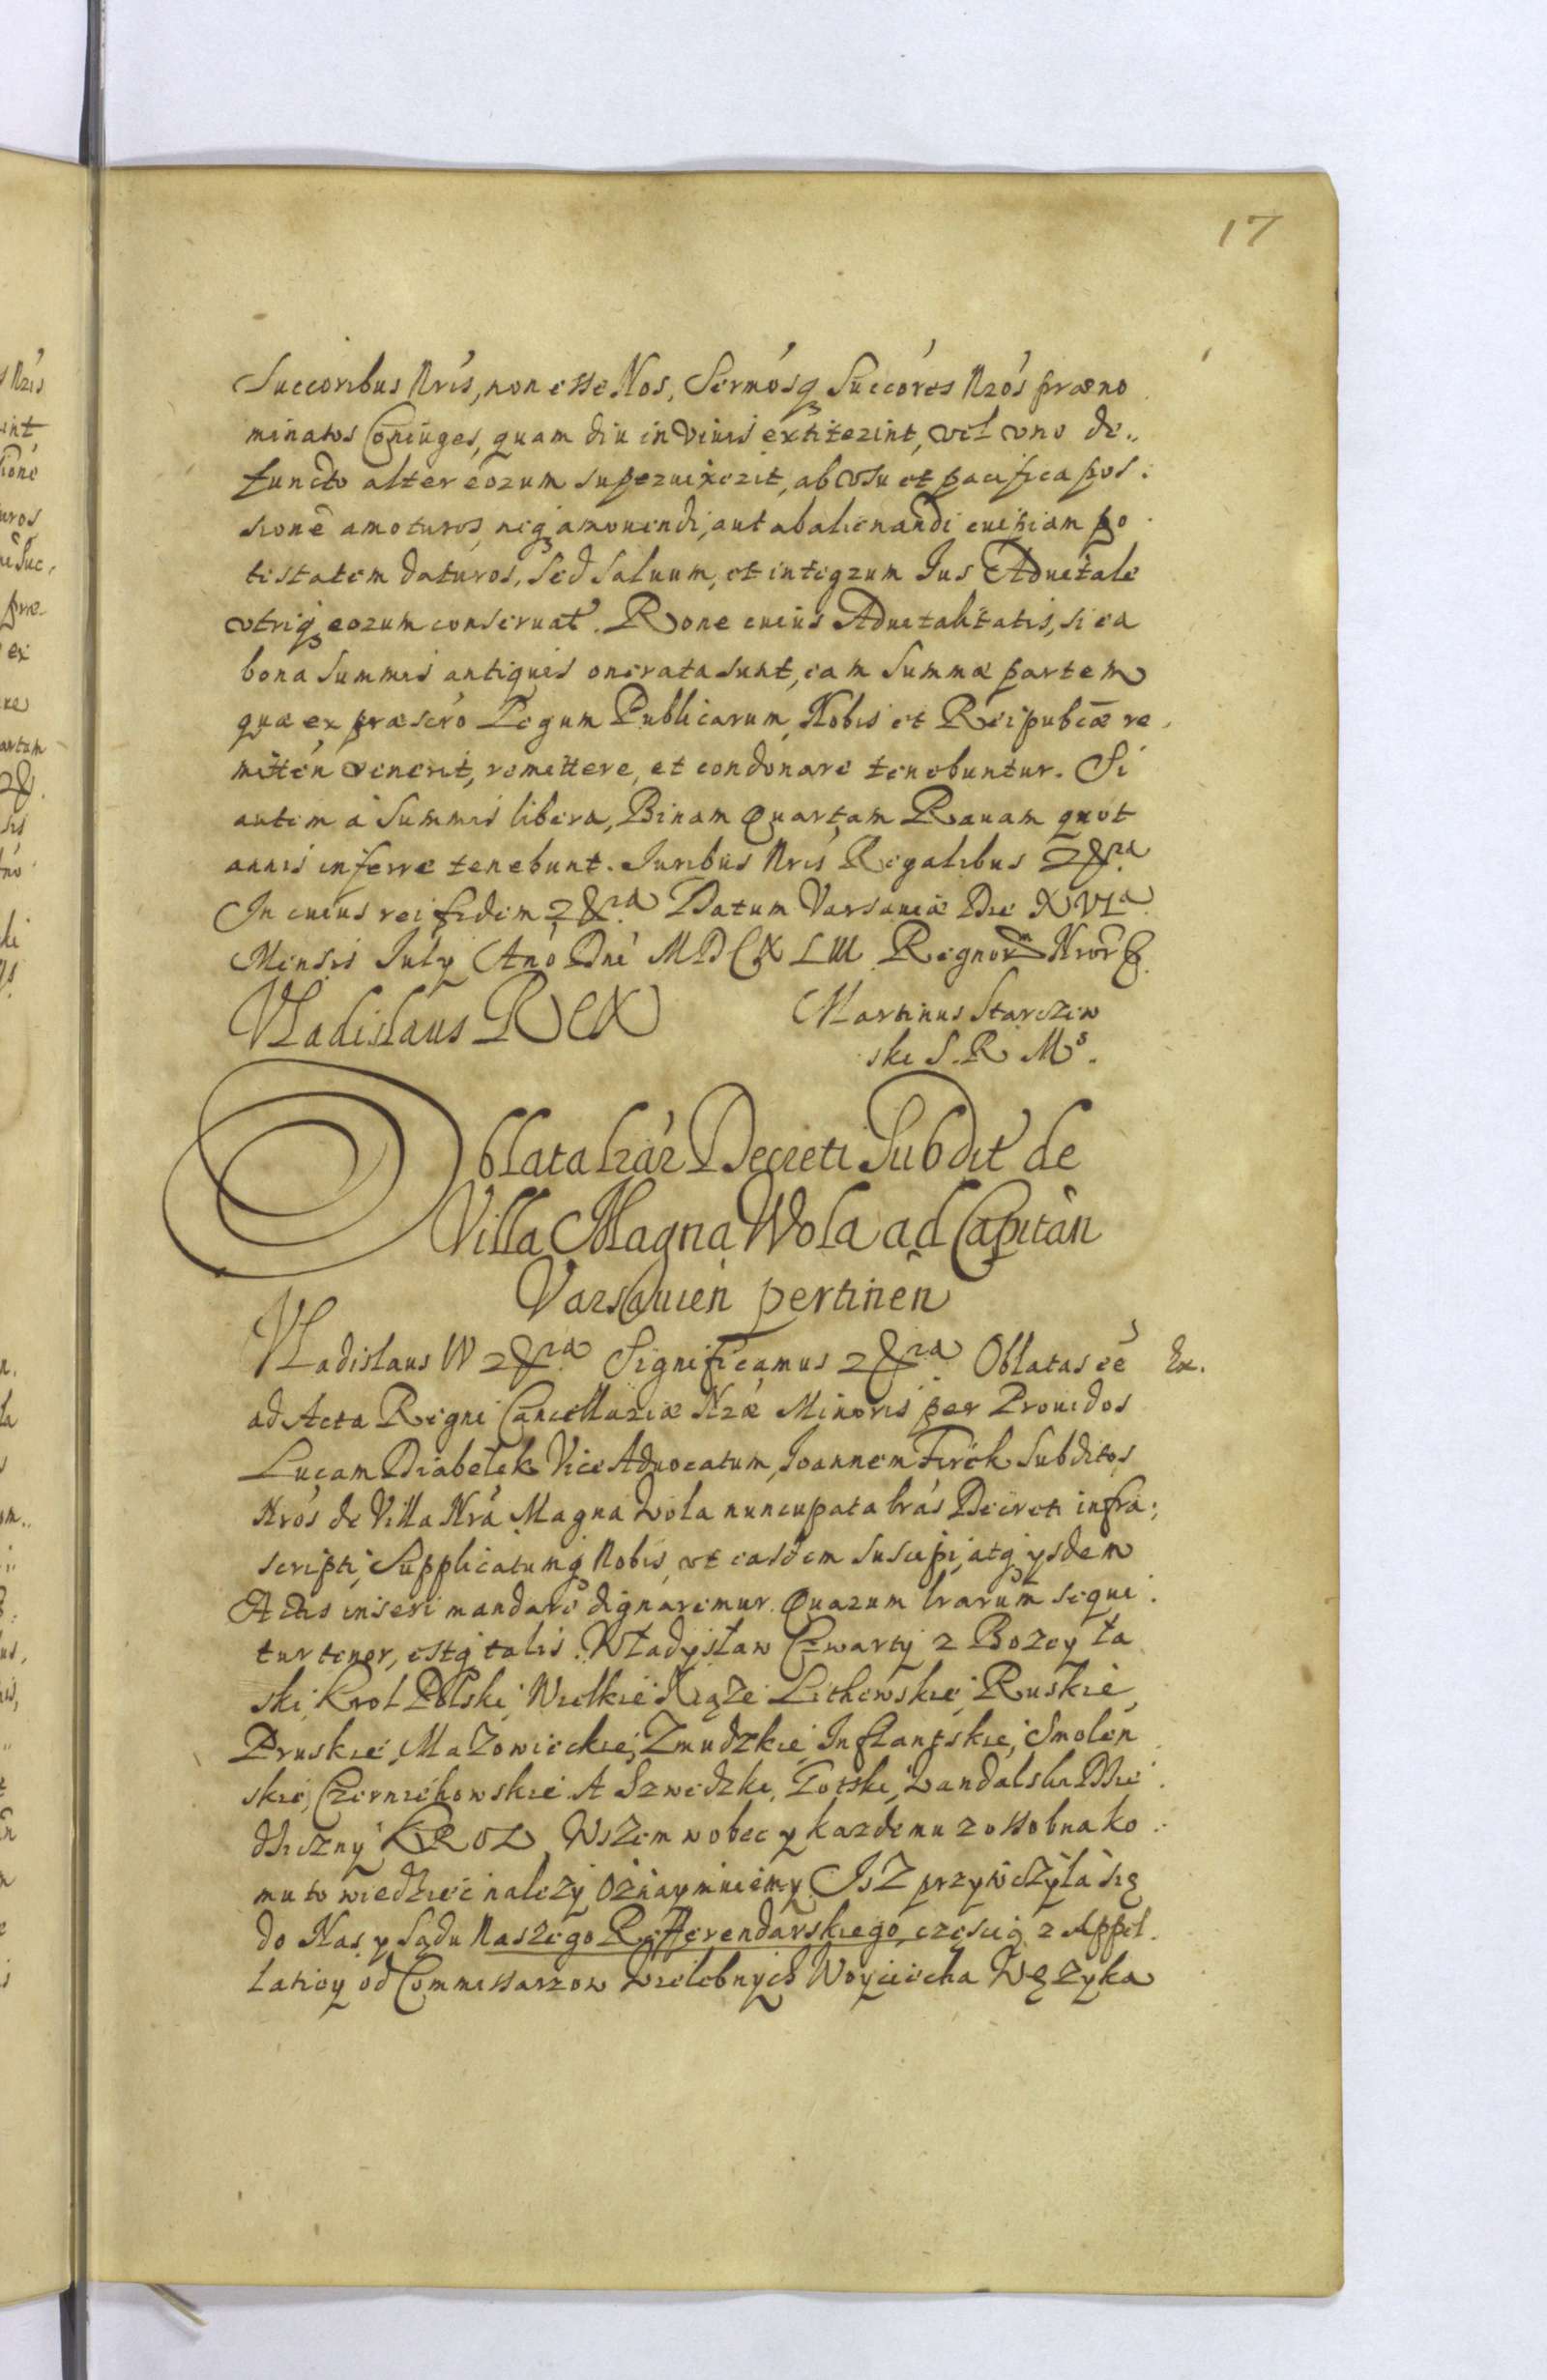 17
Succoribus Nris, non esse Nos, Sermosq Succores Nros præno
minatos Coniuges, quam diu in viuis extiterint, vel uno de„
functo alter eorum superuixerit, ab usu et pacifica pos:
sione amoturos, neq amouendi, aut abalienandi cuipiam po
testatem daturos, sed saluum, et integrum Jus Aduitale
utriq eorum conseruat. Rone cuius Aduitalitatis, si ea
bona summis antiquis onerata sunt, eam summæ partem
quæ ex præscro Legum Publicarum, Nobis et Reipubcæ re
mitten venerit, remittere, et condonare tenebuntur. Si
autem a summis libera, Binam Quartam Rauam quot
annis inferre tenebunt. Juribus Nris Regalibus &ra
In cuius rei fidem &ra Datum Varsauiæ Die XVIa
Mensis July Ano Dni MDCXLIII Regnor Nror
Vladislaus Rex
Martinus Starczew
ski S. R. Ms.
Oblata lrar Decreti Subdit de
Villa Magna Wola ad Capitan
Varsauien pertinen
Vladislaus IV &ra Significamus &ra Oblatas ee
Ex.
ad Acta Regni Cancellariæ Nræ Minoris per Prouidos
Lucam Diabełek Vice Aduocatum, Joannem Firek Subditos
Nros de Villa Nra Magna Wola nuncupata lras Decreti infra:
scripti, Supplicatumq Nobis, ut easdem suscipi, atq ysdem
Actis inseri mandare dignaremur. Quarum lrarum sequi:
tur tenor, estq talis. Władysław Czwarty z Bozey ła
ski Krol Polski, Wielkie Xiąże Lithewskie, Ruskie
Pruskie, Mazowieckie, Zmudzkie, Inflantskie, Smolen
skie, Czerniehowskie A Szwedzki, Gotski, Wandalski Dzie
dziczny KROL Wszem wobec y kazdemu z ossobna ko
mu to wiedziec nalezy oznaymuiemy Jsz przytoczyła się
do Nas y Sądu Naszego Refferendarskiego, częscią z Appel
latiey od Commissarzow Wielebnych Woyciecha Wężyka